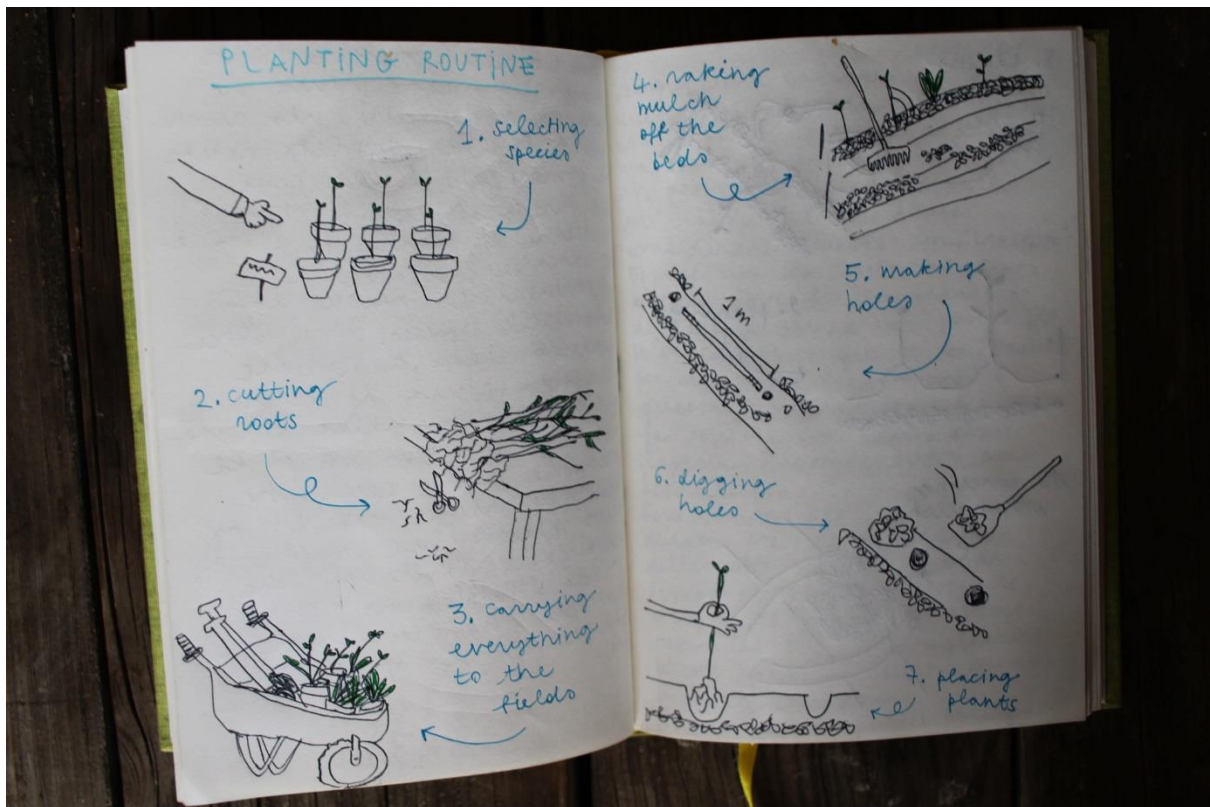 PLANTING ROUTINE
1. selecting
species
2. cutting
roots
3. carrying
everything
to the
fields
4. raking
mulch
off the
beds
1 m
5. making
holes
6. digging
holes
7. placing
plants